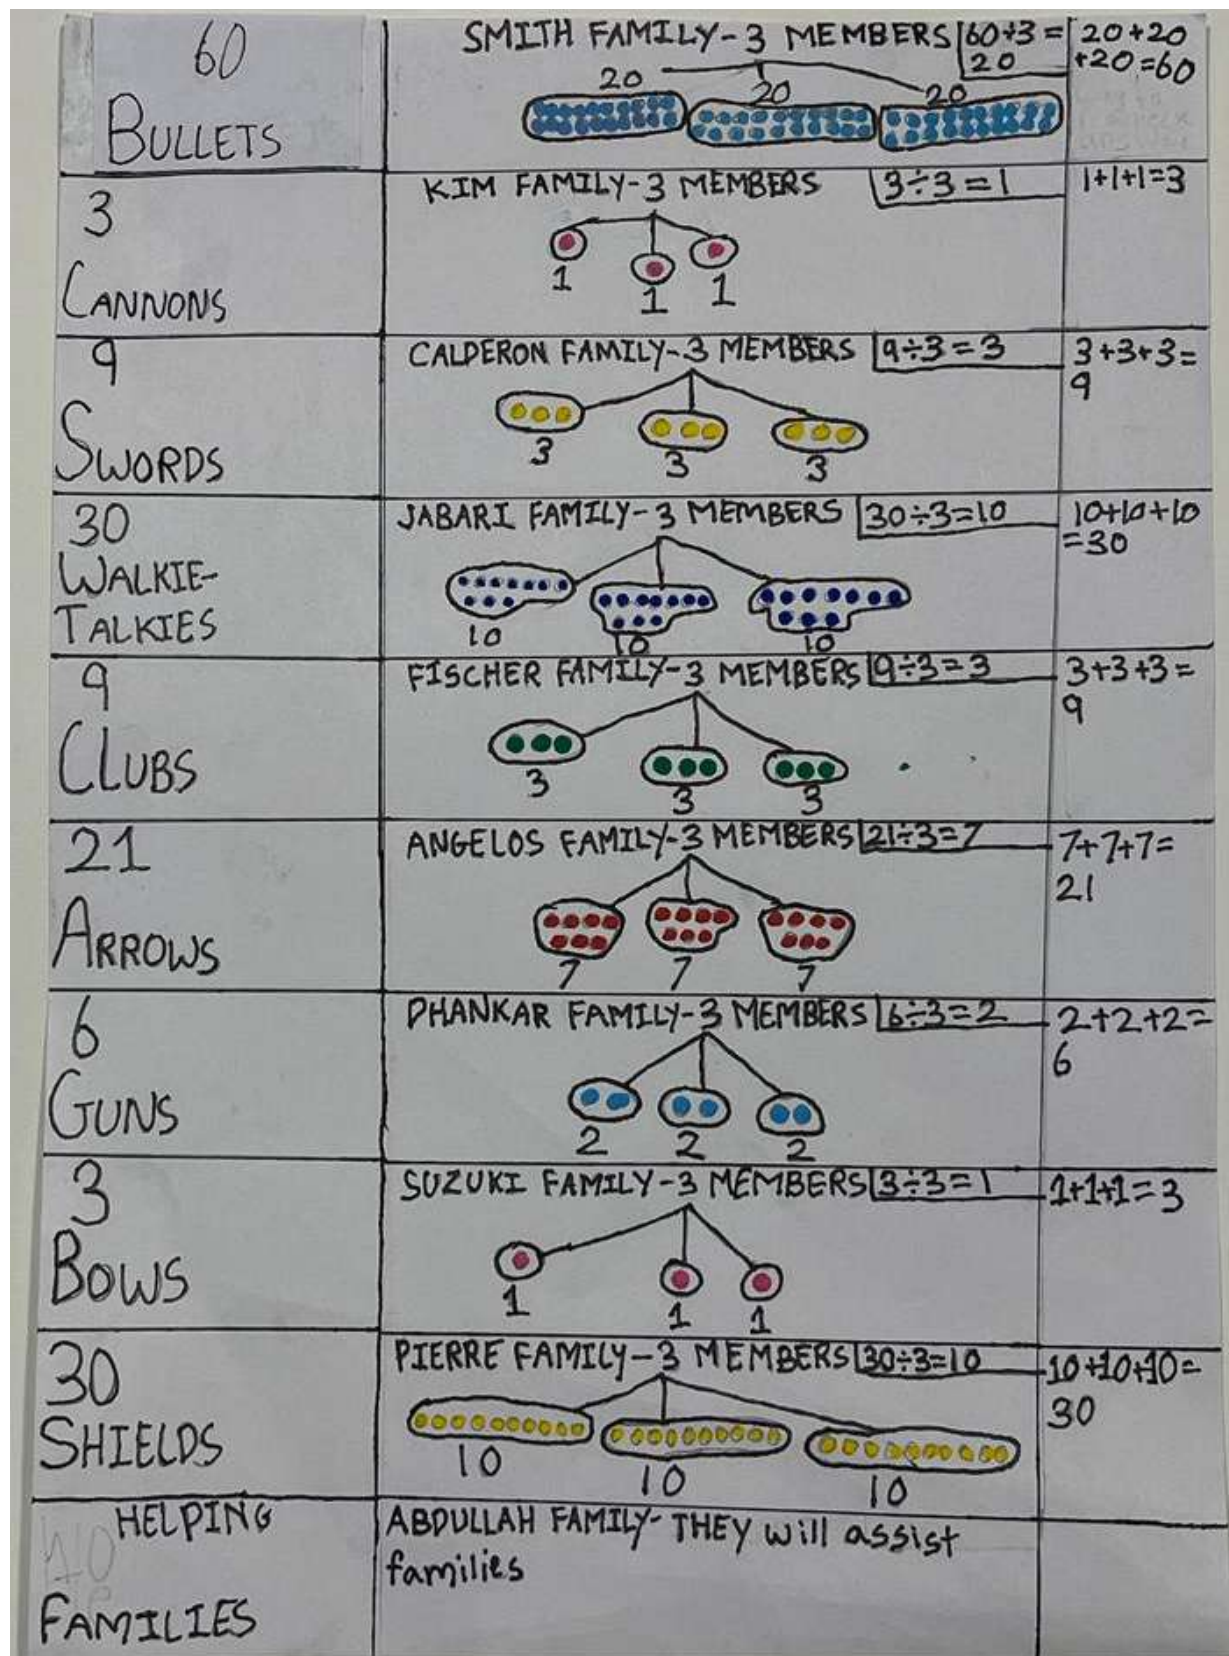 60
BULLETS
SMITH FAMILY-3 MEMBERS
60÷3=
20
20+20
+20=60
20
20
20
3
CANNONS
KIM FAMILY-3 MEMBERS
3÷3=1
1+1+1=3
1
1
1
9
SWORDS
CALDERON FAMILY-3 MEMBERS
9÷3=3
3+3+3=
9
3
3
3
30
WALKIE-
TALKIES
JABARI FAMILY-3 MEMBERS
30÷3=10
10+10+10
=30
10
10
10
9
CLUBS
FISCHER FAMILY-3 MEMBERS
9÷3=3
3+3+3=
9
3
3
3
21
ARROWS
ANGELOS FAMILY-3 MEMBERS
21÷3=7
7+7+7=
21
7
7
7
6
GUNS
DHANKAR FAMILY-3 MEMBERS
6÷3=2
2+2+2=
6
2
2
2
3
BOWS
SUZUKI FAMILY-3 MEMBERS
3÷3=1
1+1+1=3
1
1
1
30
SHIELDS
PIERRE FAMILY-3 MEMBERS
30÷3=10
10+10+10=
30
10
10
10
HELPING
FAMILIES
ABDULLAH FAMILY- THEY will assist
families